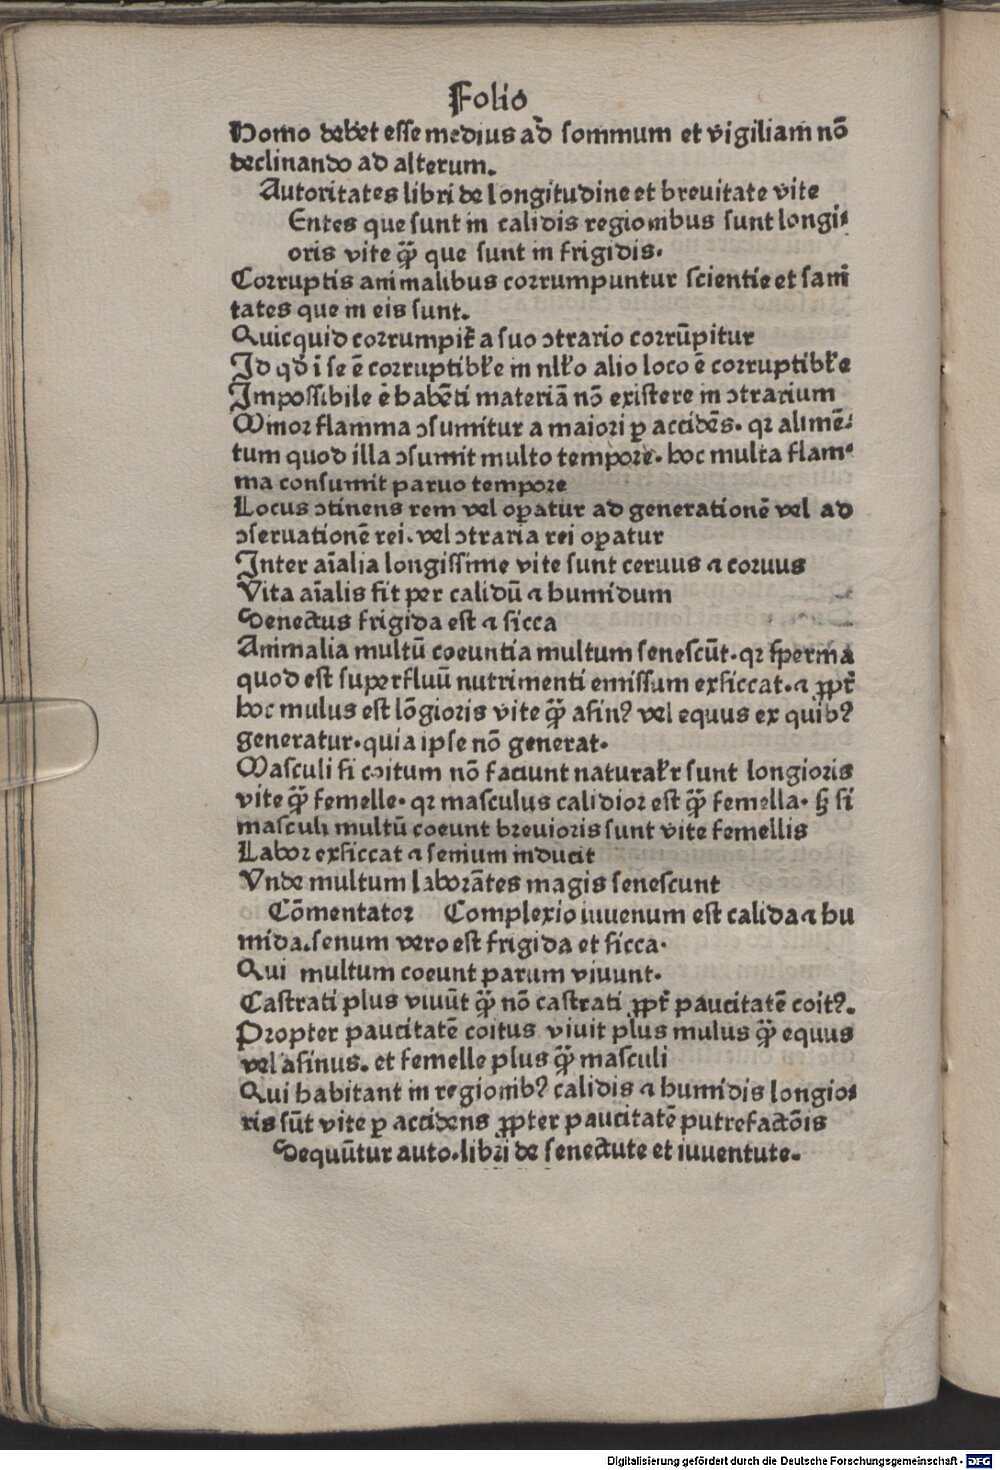 Folio
Homo debet esse medius ad sommum et vigiliam nō
declinando ad alterum.
Autoritates libri de longitudine et brevitate vite
Entes que sunt in calidis regionibus sunt longi⸗
oris vite q̃ȝ que sunt in frigidis.
Corruptis animalibus corrumpuntur scientie et sani
tates que in eis sunt.
Quicquid corrumpit̃ a suo ↄtrario corrūpitur
Id qđ ī se ē corruptibłe in nłło alio loco ē corruptibłe
Impossibile ē habēti materiā nō existere in ↄtrarium
Minor flamma ↄsumitur a maiori ꝑ accidēs. qꝛ alimē⸗
tum quod illa ↄsumit multo tempore. hoc multa flam⸗
ma consumit paruo tempore
Locus ↄtinens rem vel oꝑatur ad generationē vel ad
ↄseruationē rei. vel ↄtraria rei oꝑatur
Inter aīalia longissime vite sunt ceruus ⁊ coruus
Vita aīalis fit per calidū ⁊ humidum
Senectus frigida est ⁊ sicca
Animalia multū coeuntia multum senescūt. qꝛ sperma
quod est superfluū nutrimenti emissum exsiccat. ⁊ ꝓpt̃
hoc mulus est lōgioris vite q̃ȝ asinꝰ vel equus ex quibꝰ
generatur. quia ipse nō generat.
Masculi si coitum nō faciunt naturałr sunt longioris
vite q̃ȝ femelle. qꝛ masculus calidior est q̃ȝ femella. sȝ si
masculi multū coeunt brevioris sunt vite femellis
Labor exsiccat ⁊ senium inducit
Vnde multum laborātes magis senescunt
Cōmentator Complexio iuuenum est calida ⁊ hu
mida. senum vero est frigida et sicca.
Qui multum coeunt parum viuunt.
Castrati plus viuūt q̃ȝ nō castrati ꝓpt̃ paucitatē coitꝰ.
Propter paucitatē coitus viuit plus mulus q̃ȝ equus
vel asinus. et femelle plus q̃ȝ masculi
Qui habitant in regionibꝰ calidis ⁊ humidis longio⸗
ris sūt vite ꝑ accidens ꝓpter paucitatē putrefactōis
Sequūtur auto. libri de senectute et iuuentute.
Digitalisierung gefördert durch die Deutsche Forschungsgemeinschaft - DFG